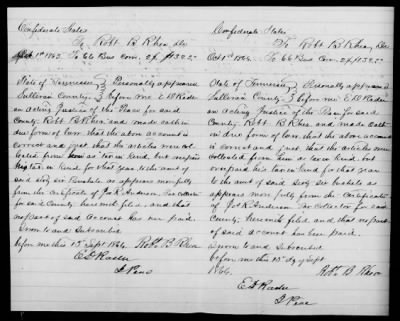 Confederate States
To Robt B Rhea, Dr
Oct 1st 1863. To 66 Bus Corn. 2/
State of Tennessee } Personally appeared
Sullivan County } before me E D Rader
an acting Justice of the Peace for said
County Robt B Rhea and made oath in
due form of law that the above account is
correct and just that the articles were col
lected from him as tax in kind, but
his tax in kind for that year to the amt of
said sixty six bushels as appears more fully
from the certificate of Jas R Anderson Tax Collector
for said County herewith filed, and that
no part of said account has been paid.
Sworn to and Subscribed
before me this 15 Sept 1864. Robt B Rhea
E D Rader
J. Peace
Confederate States
To Robt B Rhea, Dr
Oct 1st 1864. To 66 Bus Corn 2/
State of Tennessee } Personally appeared
Sullivan County } before me E D Rader
an acting Justice of the Peace for said
County Robt B Rhea and made oath
in due form of law, that the above account
is correct and just, that the articles were
collected from him as tax in kind, but
overpaid his tax in kind for that year
to the amt of said sixty six bushels as
appears more fully from the Certificate
of Jas R Anderson Tax Collector for said
County, herewith filed and that no part
of said account has been paid.
Sworn to and Subscribed
before me this 15 day of Sept
1864. Robt B Rhea
E D Rader
J. Peace